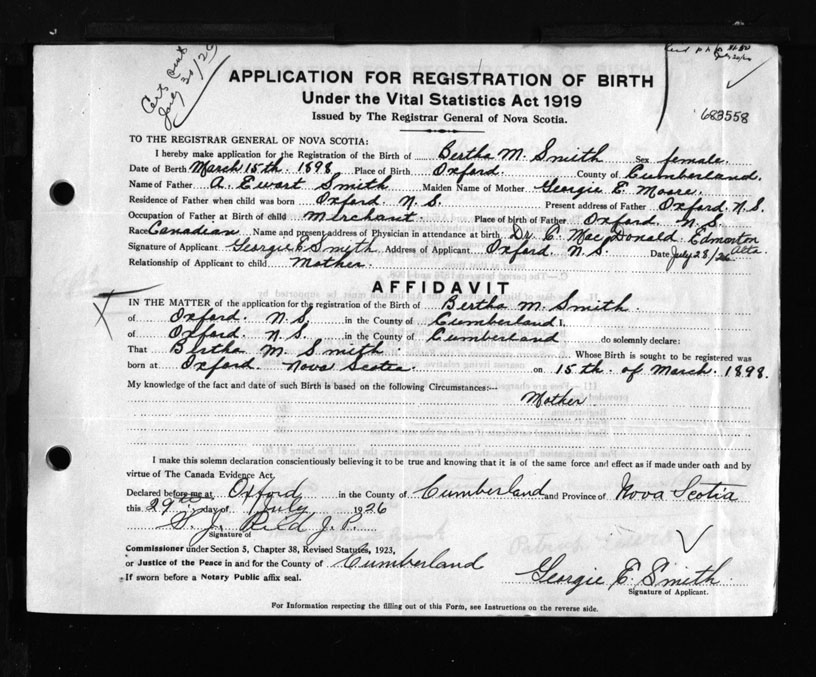 Cert. sent
July 30/26
683558
APPLICATION FOR REGISTRATION OF BIRTH
Under the Vital Statistics Act 1919
Issued by The Registrar General of Nova Scotia.
TO THE REGISTRAR GENERAL OF NOVA SCOTIA:
I hereby make application for the Registration of the Birth of Bertha M. Smith Sex female.
Date of Berth March 15th. 1898. Place of Birth Oxford. County of Cumberland.
Name of Father A. Ewart Smith Maiden Name of Mother Georgie E. Moore.
Residence of Father when child was born Oxford. N.S. Present address of Father Oxford. N.S.
Occupation of Father at Birth of child Merchant. Place of birth of Father Oxford. N.S.
Race Canadian Name and present address of Physician in attendance at birth Dr. C. MacDonald. Edmonton Alta.
Signature of Applicant Georgie E Smith Address of Applicant Oxford. N.S. Date July 28/26
Relationship of Applicant to child Mother.
AFFIDAVIT
IN THE MATTER of the application for the registration of the Birth of Bertha M. Smith.
of Oxford. N.S. in the County of Cumberland I,
of Oxford. N.S. in the County of Cumberland do solemnly declare:
That Bertha M. Smith. Whose Birth is sought to be registered was
born at Oxford. Nova Scotia. on 15th. of March. 1898.
My knowledge of the fact and date of such Birth is based on the following Circumstances:—
Mother.
I make this solemn declaration conscientiously believing it to be true and knowing that it is of the same force and effect as if made under oath and by
virtue of The Canada Evidence Act.
Declared before me at Oxford in the County of Cumberland and Province of Nova Scotia
this 29th day of July 1926
Reid J.P.
Signature of
Commissioner under Section 5, Chapter 38, Revised Statutes, 1923,
or Justice of the Peace in and for the County of Cumberland
If sworn before a Notary Public affix seal.
Georgie E. Smith.
Signature of Applicant.
For Information respecting the filling out of this Form, see Instructions on the reverse side.